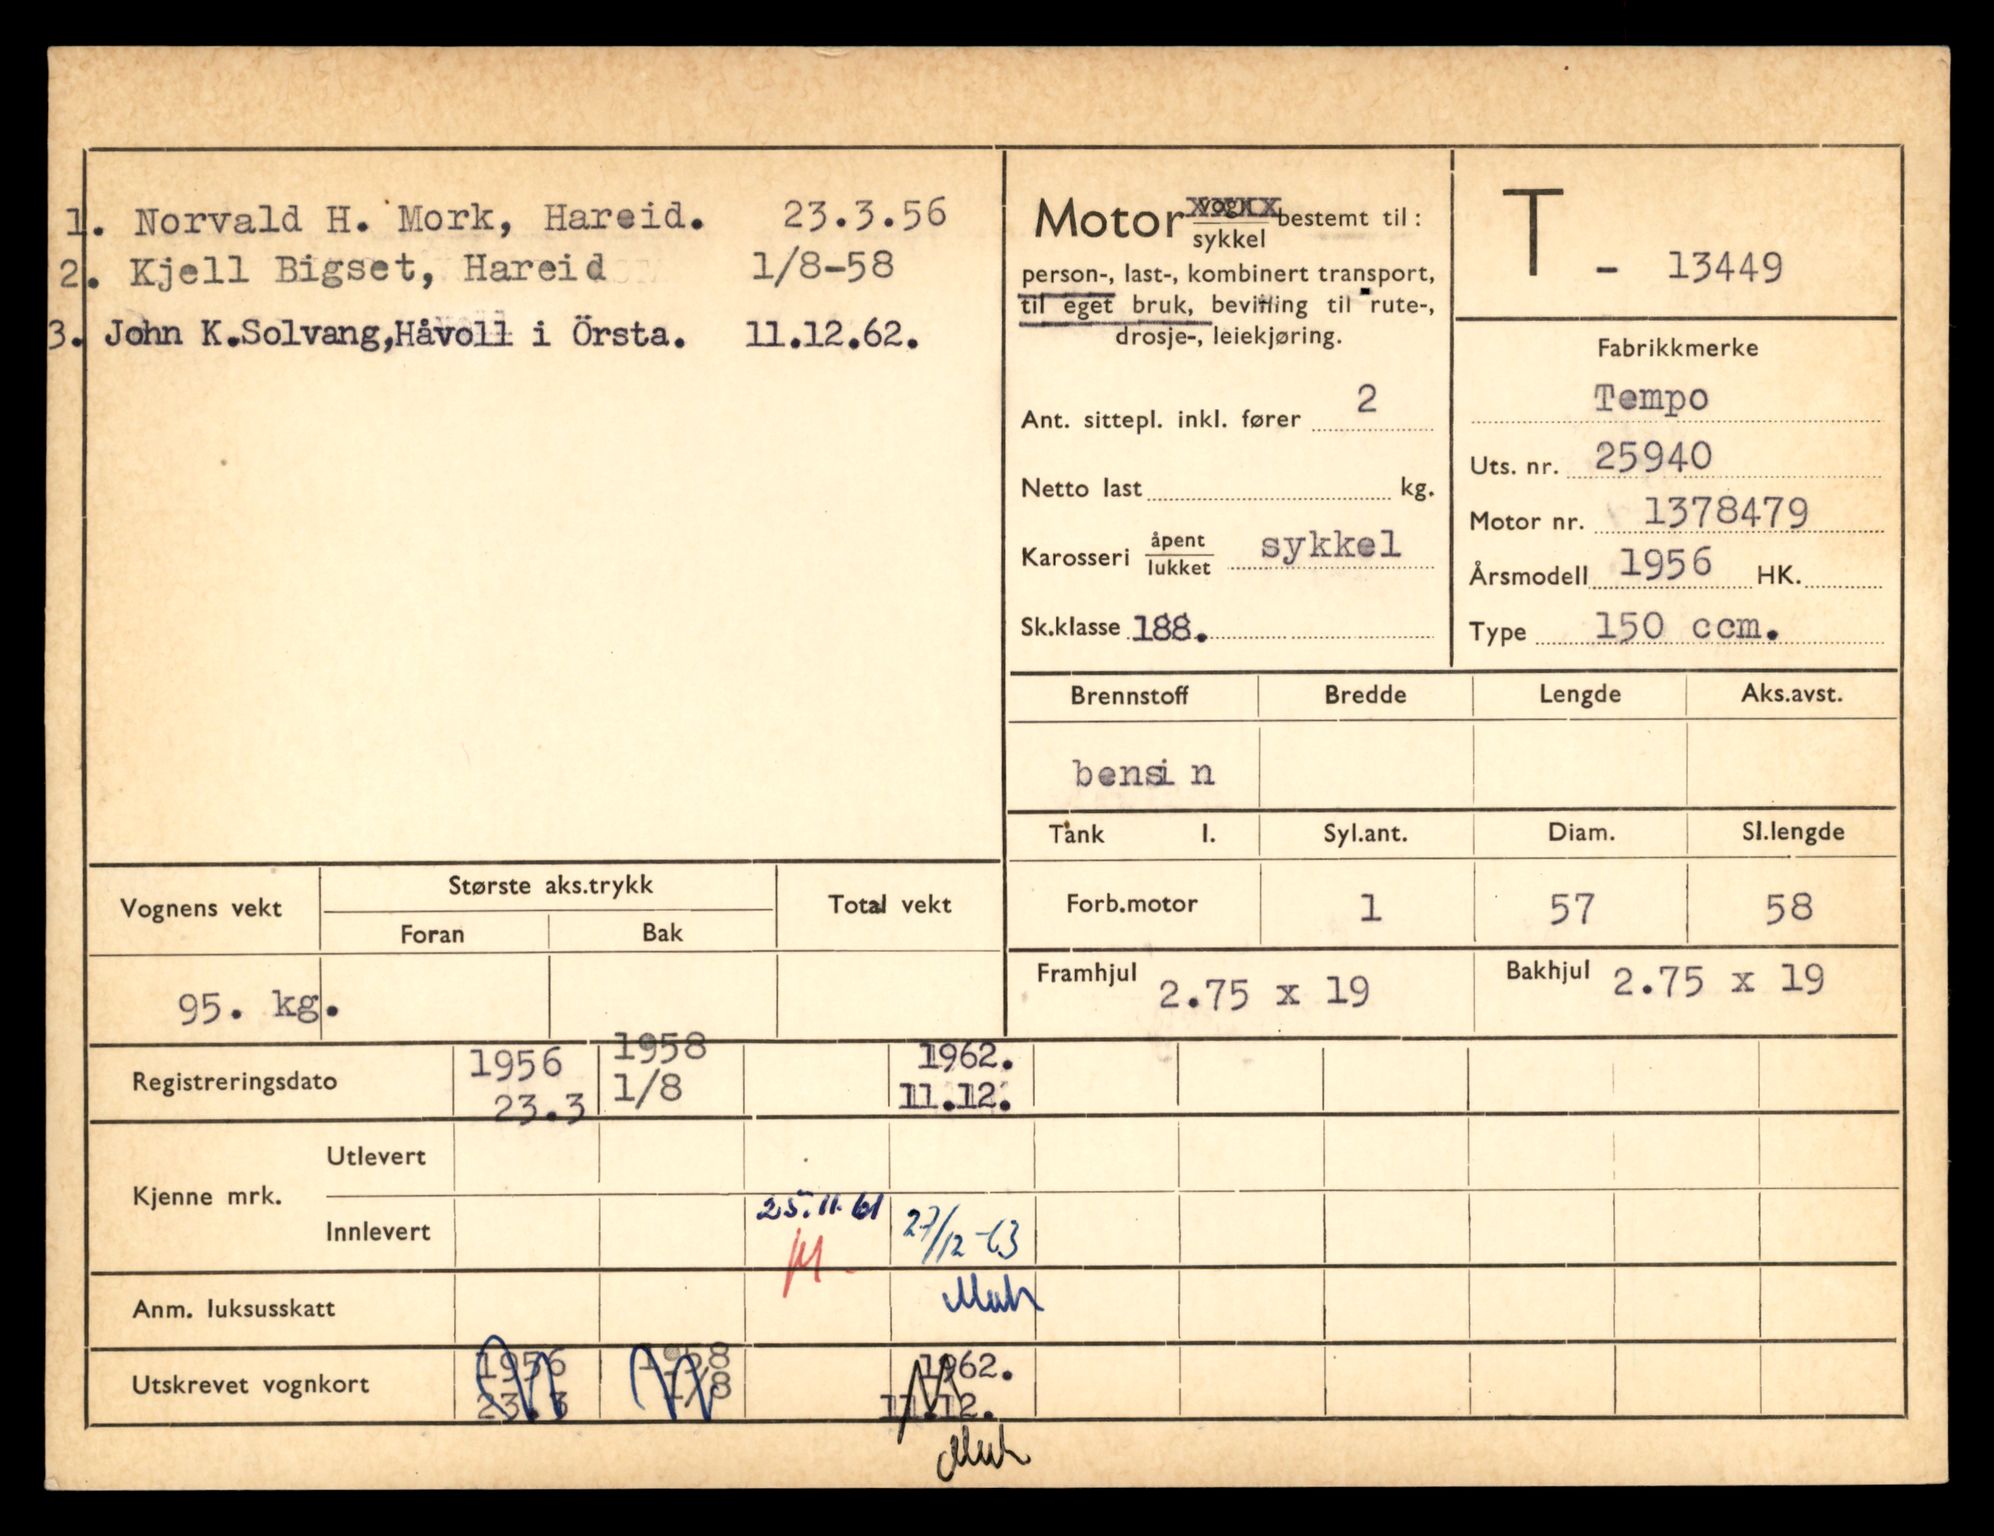 1. Norvald H. Mork, Hareid. 23.3.56
2. Kjell Bigset, Hareid 1/8-58
3. John K.Solvang,Håvoll i Örsta. 11.12.62.
Motor vogn
sykkel bestemt til:
person-, last-, kombinert transport,
til eget bruk, bevilling til rute-,
drosje-, leiekjøring.
Ant. sittepl. inkl. fører 2
Netto last kg.
Karosseri åpent
lukket sykkel
Sk.klasse 188.
T - 13449
Fabrikkmerke
Tempo
Uts. nr. 25940
Motor nr. 1378479
Årsmodell 1956 HK.
Type 150 ccm.
Brennstoff Bredde Lengde Aks.avst.
bensin
Tank l. Syl.ant. Diam. Sl.lengde
Forb.motor 1 57 58
Framhjul 2.75 x 19 Bakhjul 2.75 x 19
Vognens vekt Største aks.trykk Total vekt
Foran Bak
95. kg.
Registreringsdato 1956 1958 1962.
23.3 1/8 11.12.
Kjenne mrk. Utlevert
Innlevert 25.11.61 27/12-63
M
Anm. luksusskatt
Utskrevet vognkort 1956 1958 1962.
23.3 1/8 11.12.